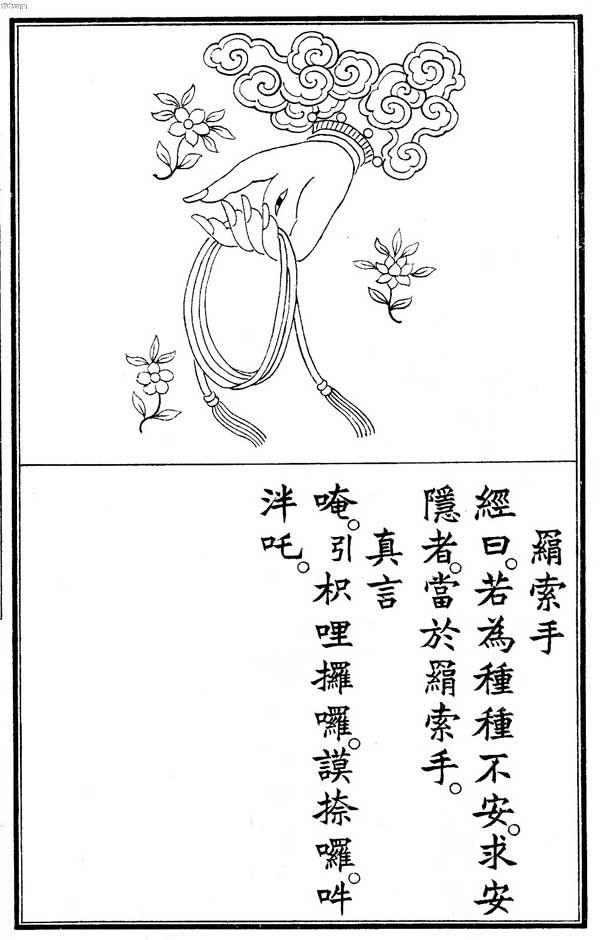 羂索手
經曰。若為種種不安。求安
隱者。當於羂索手。
真言
唵。引枳哩攞囉。謨捺囉。吽
泮吒。